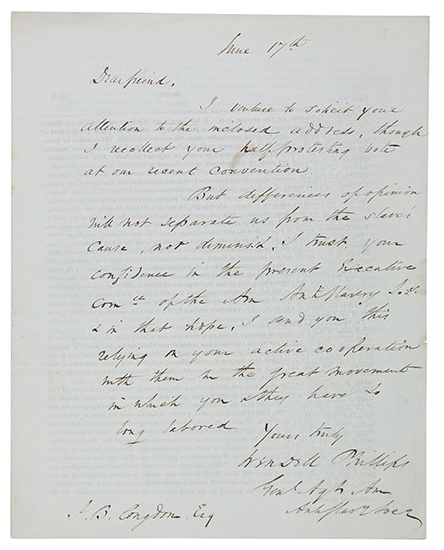 June 17th
Dear friend,
I venture to solicit your
attention to the inclosed address, though
I recollect your half protesting vote
at our recent convention.
But differences of opinion
will not separate us from the slaves
cause, nor diminish, I trust, your
confidence in the present Executive
Comee of the Am Anti Slavery Socy
& in that hope, I send you this
relying on your active cooperation
with them in the great movement
in which you & they have so
long labored
Yours truly
Wendell Phillips
Genl Agt Am
Anti Slavy Socy
J. B. Congdon, Esq